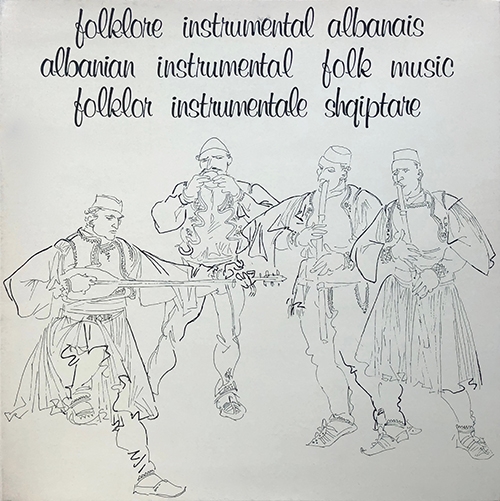 folklore instrumental albanais
albanian instrumental folk music
folklor instrumentale shqiptare